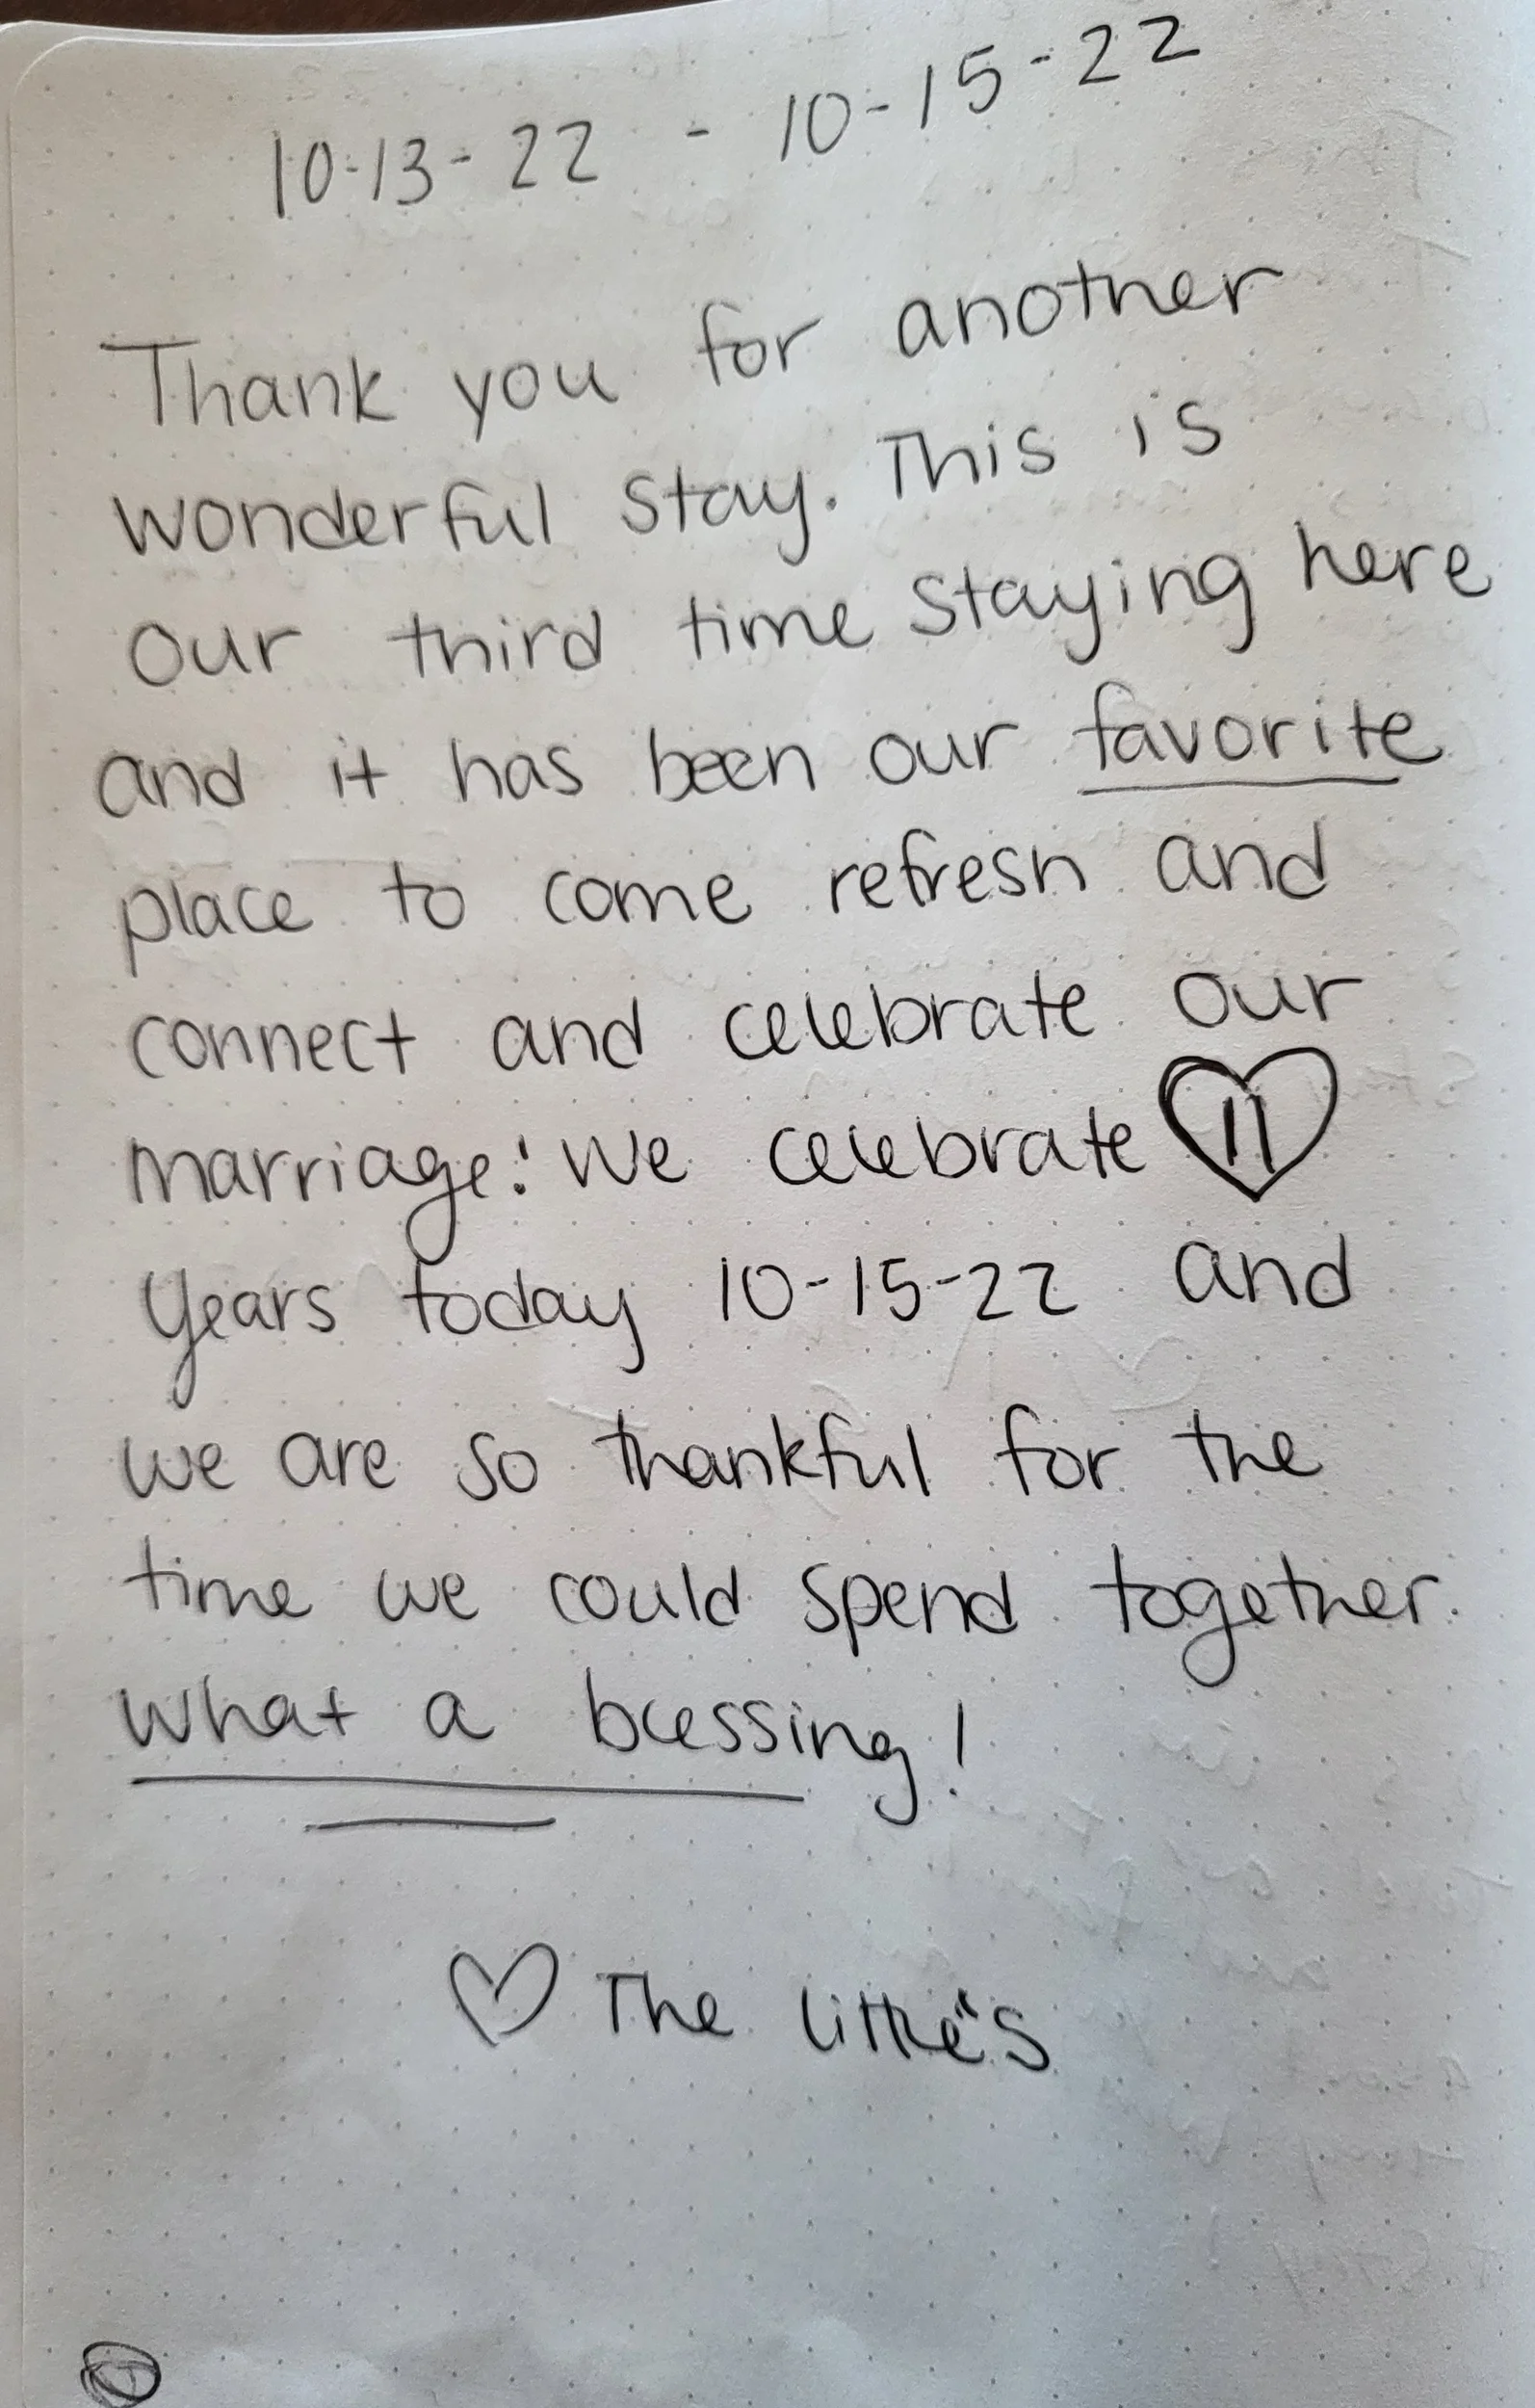 10-13-22 - 10-15-22
Thank you for another
wonderful stay. This is
our third time staying here
and it has been our favorite
place to come refresh and
connect and celebrate our
marriage! We celebrate 11
years today 10-15-22 and
we are so thankful for the
time we could spend together.
What a blessing!
♡ The Little's